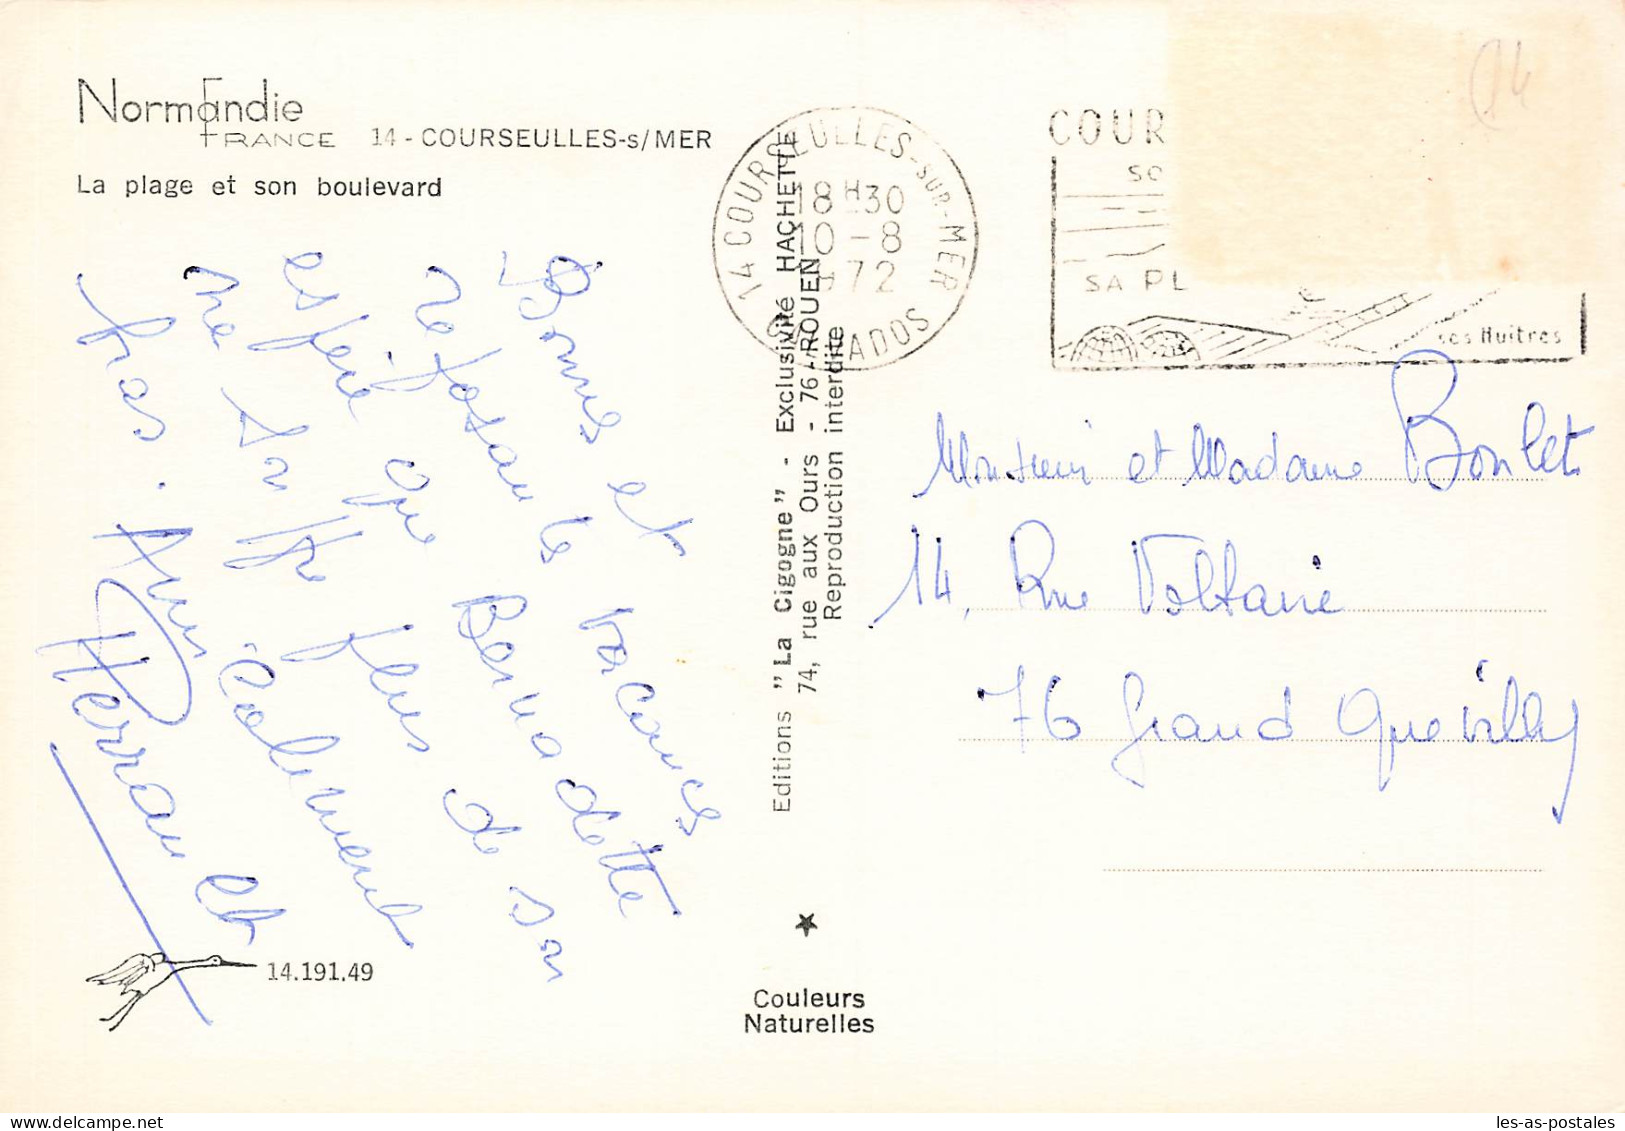 Normandie
FRANCE
14 - COURSEULLES-s/MER
La plage et son boulevard
Bonnes et
reposantes vacances
espère que Bernadette
ne souffre plus de son
bras. Amicalement
14.191.49
Editions "La Cigogne" - Exclusivité HACHETTE
74, rue aux Ours - 76 - ROUEN
Reproduction interdite
Couleurs
Naturelles
14 COURSEULLES-SUR-MER
18H30
10-8
1972
CALVADOS
COUR
SO
SA PL
ses Huitres
14
Monsieur et Madame Boulet
14, Rue Voltaire
76 Grand Quevilly
les-as-postales